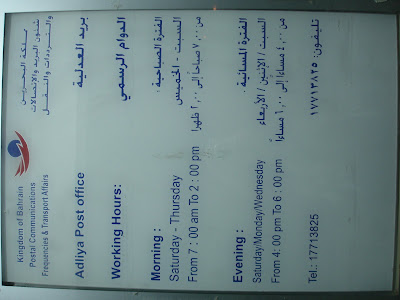 مملكة البحرين
شئون البريد والاتصالات
والترددات والنقل
Kingdom of Bahrain
Postal Communications
Frequencies & Transport Affairs
بريد العدلية
Adliya Post office
الدوام الرسمي
Working Hours:
الفترة الصباحية :
السبت - الخميس
من ٧,٠٠ صباحاً إلى ٢,٠٠ ظهراً
Morning :
Saturday - Thursday
From 7 : 00 am To 2 : 00 pm
الفترة المسائية :
السبت / الإثنين / الأربعاء
من ٤,٠٠ مساءاً إلى ٦,٠٠ مساءاً
Evening :
Saturday/Monday/Wednesday
From 4: 00 pm To 6 : 00 pm
تليفون: ١٧٧١٣٨٢٥
Tel.: 17713825